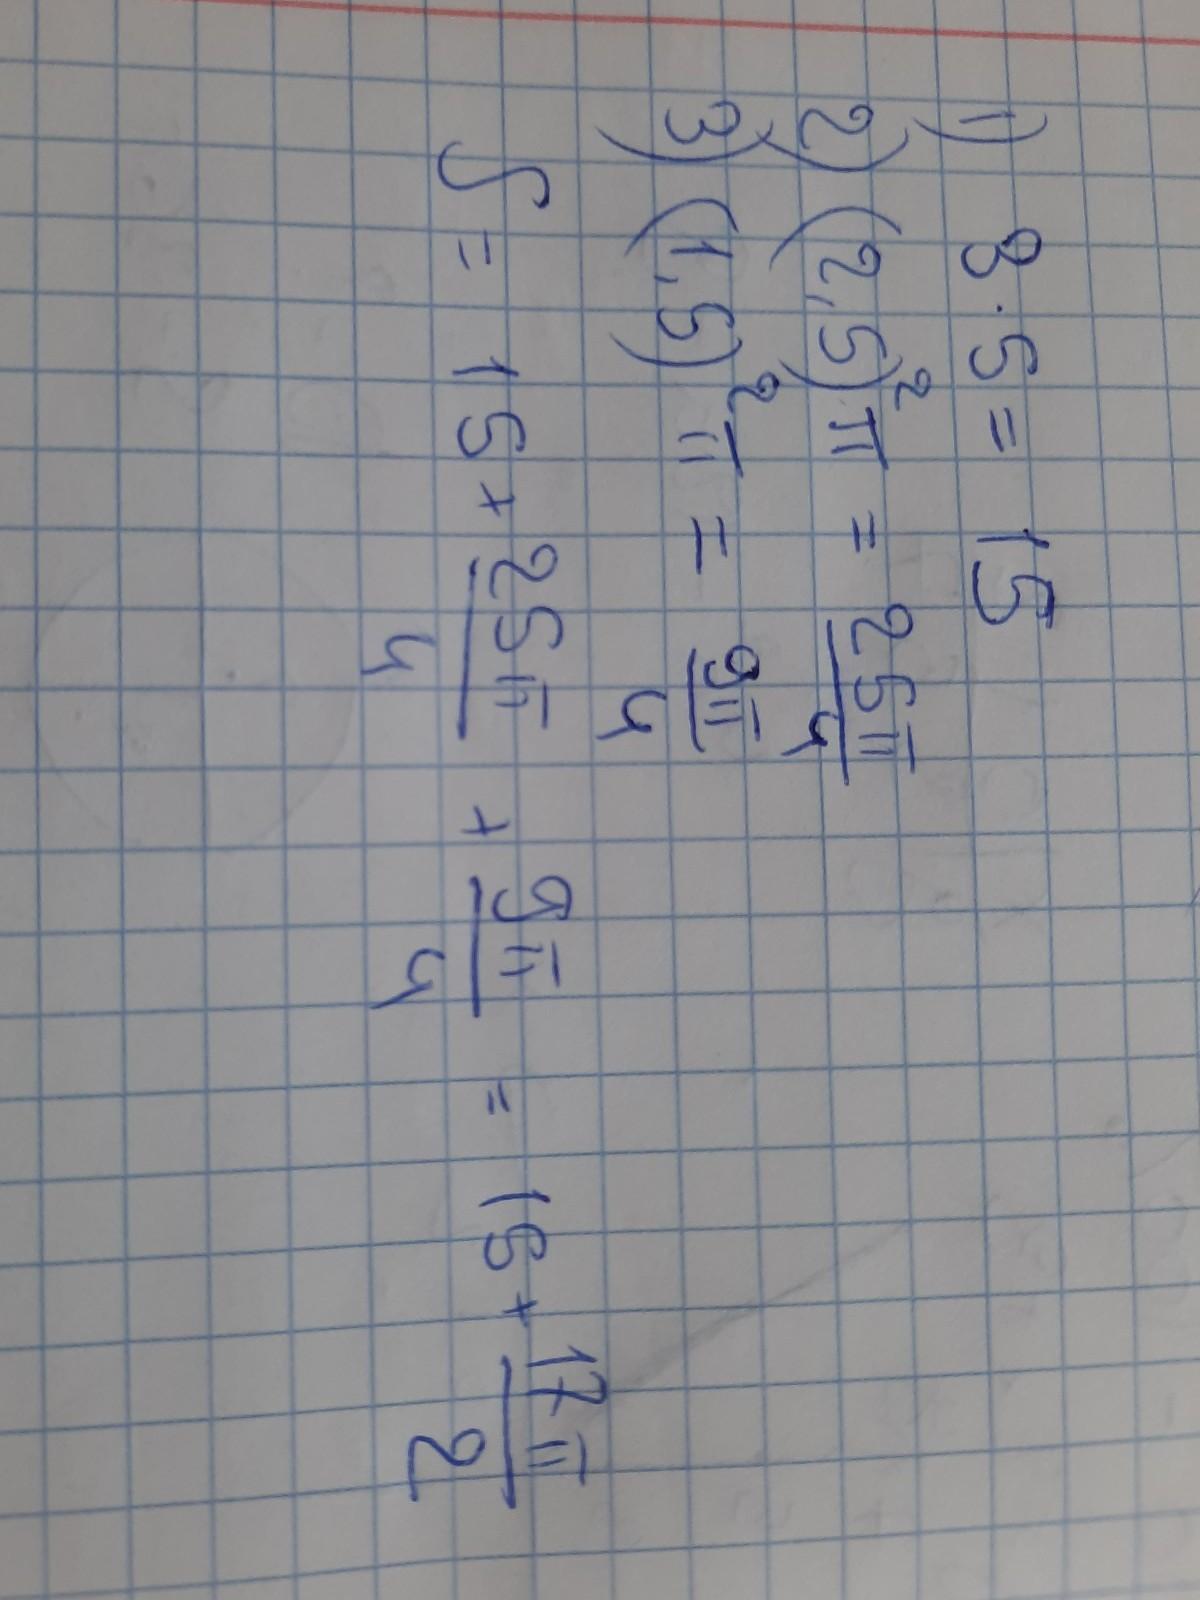 1) 3 · 5 = 15
2) (2,5)² · π = 25π/4
3) (1,5)² π = 9π/4
S = 15 + 25π/4 + 9π/4 = 15 + 17π/2